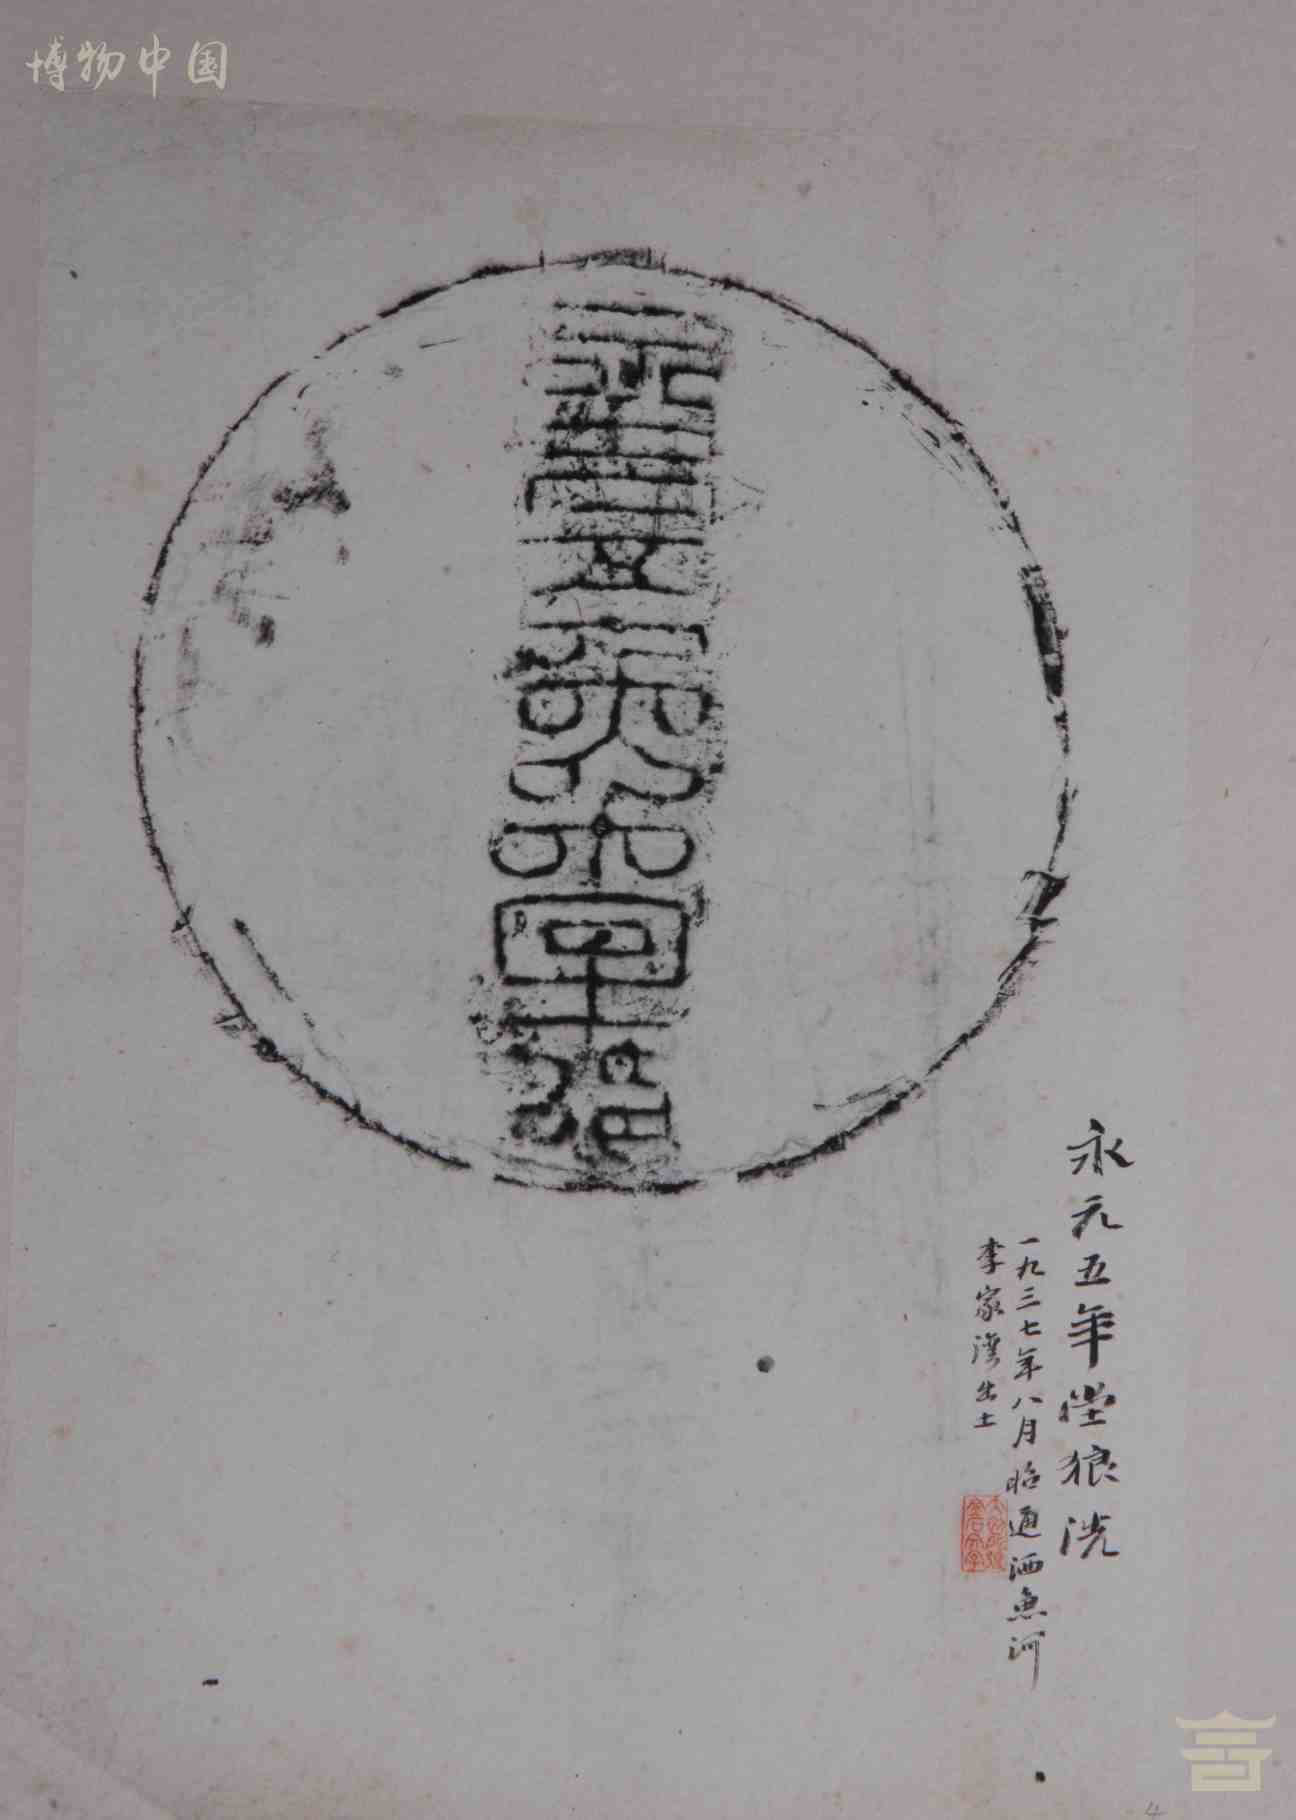 博物中国
永元五年堂狼
永元五年堂狼洗
一九三七年八月昭通洒魚河
李家湾出土